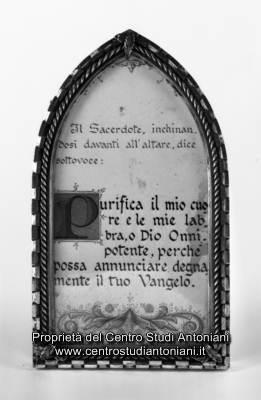 Il Sacerdote, inchinan.
dosi davanti all'altare, dice
sottovoce:
Purifica il mio cuo
re e le mie lab
bra, o Dio Onni.
potente, perchè
possa annunciare degna
mente il tuo Vangelo.
Proprietà del Centro Studi Antoniani
www.centrostudiantoniani.it